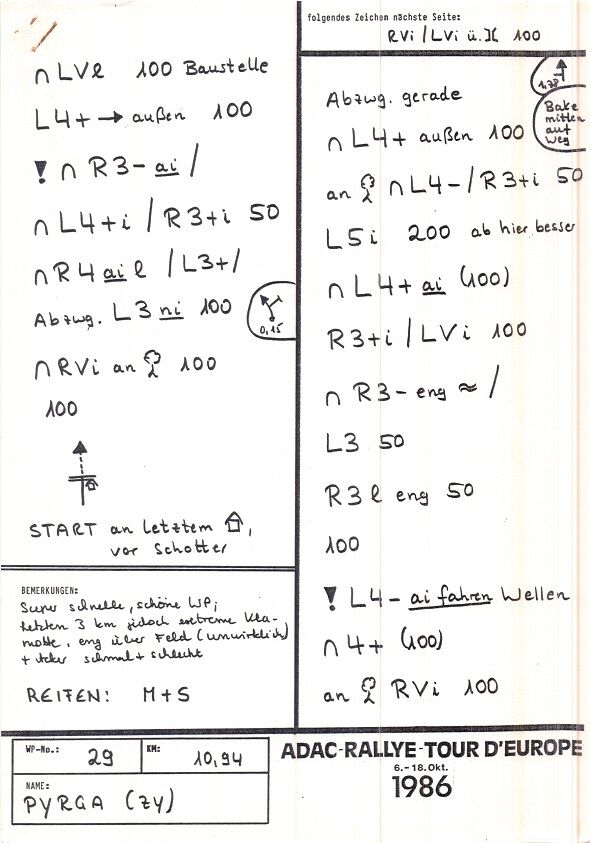 ∩ LVl 100 Baustelle
L4+ → außen 100
! ∩ R3- ai /
∩ L4+i / R3+i 50
∩ R4 ai l / L3+/
Abzwg. L3 ni 100
0,15
∩ RVi an 100
100
START an letztem ,
vor Schotter
BEMERKUNGEN:
Super schnelle, schöne WP;
letzten 3 km jedoch extreme Kla-
motte, eng über Feld (unwirklich)
+ schmal + schlecht
REIFEN: M+S
folgendes Zeichen nächste Seite:
RVi / LVi ü. 100
1,78
Abzwg. gerade
Bake
mitten
auf
Weg
∩ L4+ außen 100
an ∩ L4- / R3+i 50
L5i 200 ab hier besser
∩ L4+ ai (100)
R3+i / LVi 100
∩ R3- eng ≈ /
L3 50
R3 l eng 50
100
! L4- ai fahren Wellen
∩ 4+ (100)
an RVi 100
WP-No.: 29 KM: 10,94
NAME:
PYRGA (ZY)
ADAC-RALLYE-TOUR D'EUROPE
6.-18. Okt.
1986